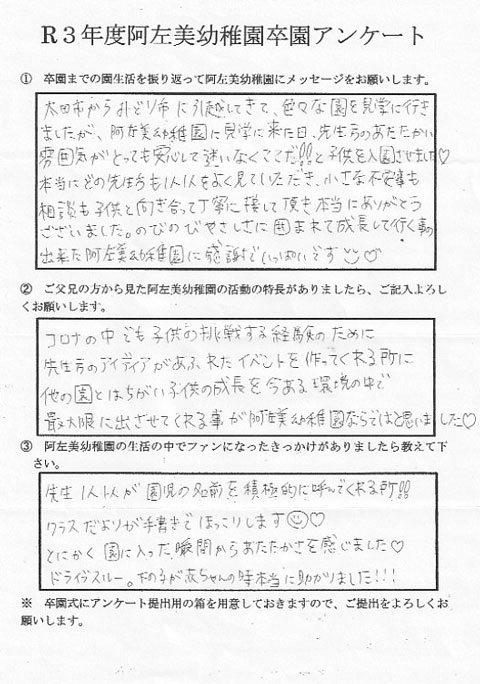 R３年度阿左美幼稚園卒園アンケート
① 卒園までの園生活を振り返って阿左美幼稚園にメッセージをお願いします。
太田市からみどり市に引越してきて、色々な園を見学に行き
ましたが、阿左美幼稚園に見学に来た日、先生方のあたたかい
雰囲気がとっても安心して迷いなくここだ!!と子供を入園させました♡
本当にどの先生も1人1人をよく見ていただき、小さな不安事も
相談も子供と向き合って丁寧に接して頂き本当にありがとう
ございました。のびのびやさしさに囲まれて成長して行く事の
出来た阿左美幼稚園に感謝でいっぱいです♡
② ご父兄の方から見た阿左美幼稚園の活動の特長がありましたら、ご記入よろし
くお願いします。
コロナの中でも子供の挑戦する経験のために
先生方のアイディアがあふれたイベントを作ってくれる所に
他の園とはちがい子供の成長を今ある環境の中で
最大限に出させてくれる事が阿左美幼稚園ならではと思いました♡
③ 阿左美幼稚園の生活の中でファンになったきっかけがありましたら教えて下
さい。
先生1人1人が園児の名前を積極的に呼んでくれる所!!
クラスだよりが手書きでほっこりします☺♡
とにかく園に入った瞬間からあたたかさを感じました♡
ドライブスルー。下の子が赤ちゃんの時本当に助かりました!!!
※ 卒園式にアンケート提出用の箱を用意しておきますので、ご提出をよろしくお
願いします。